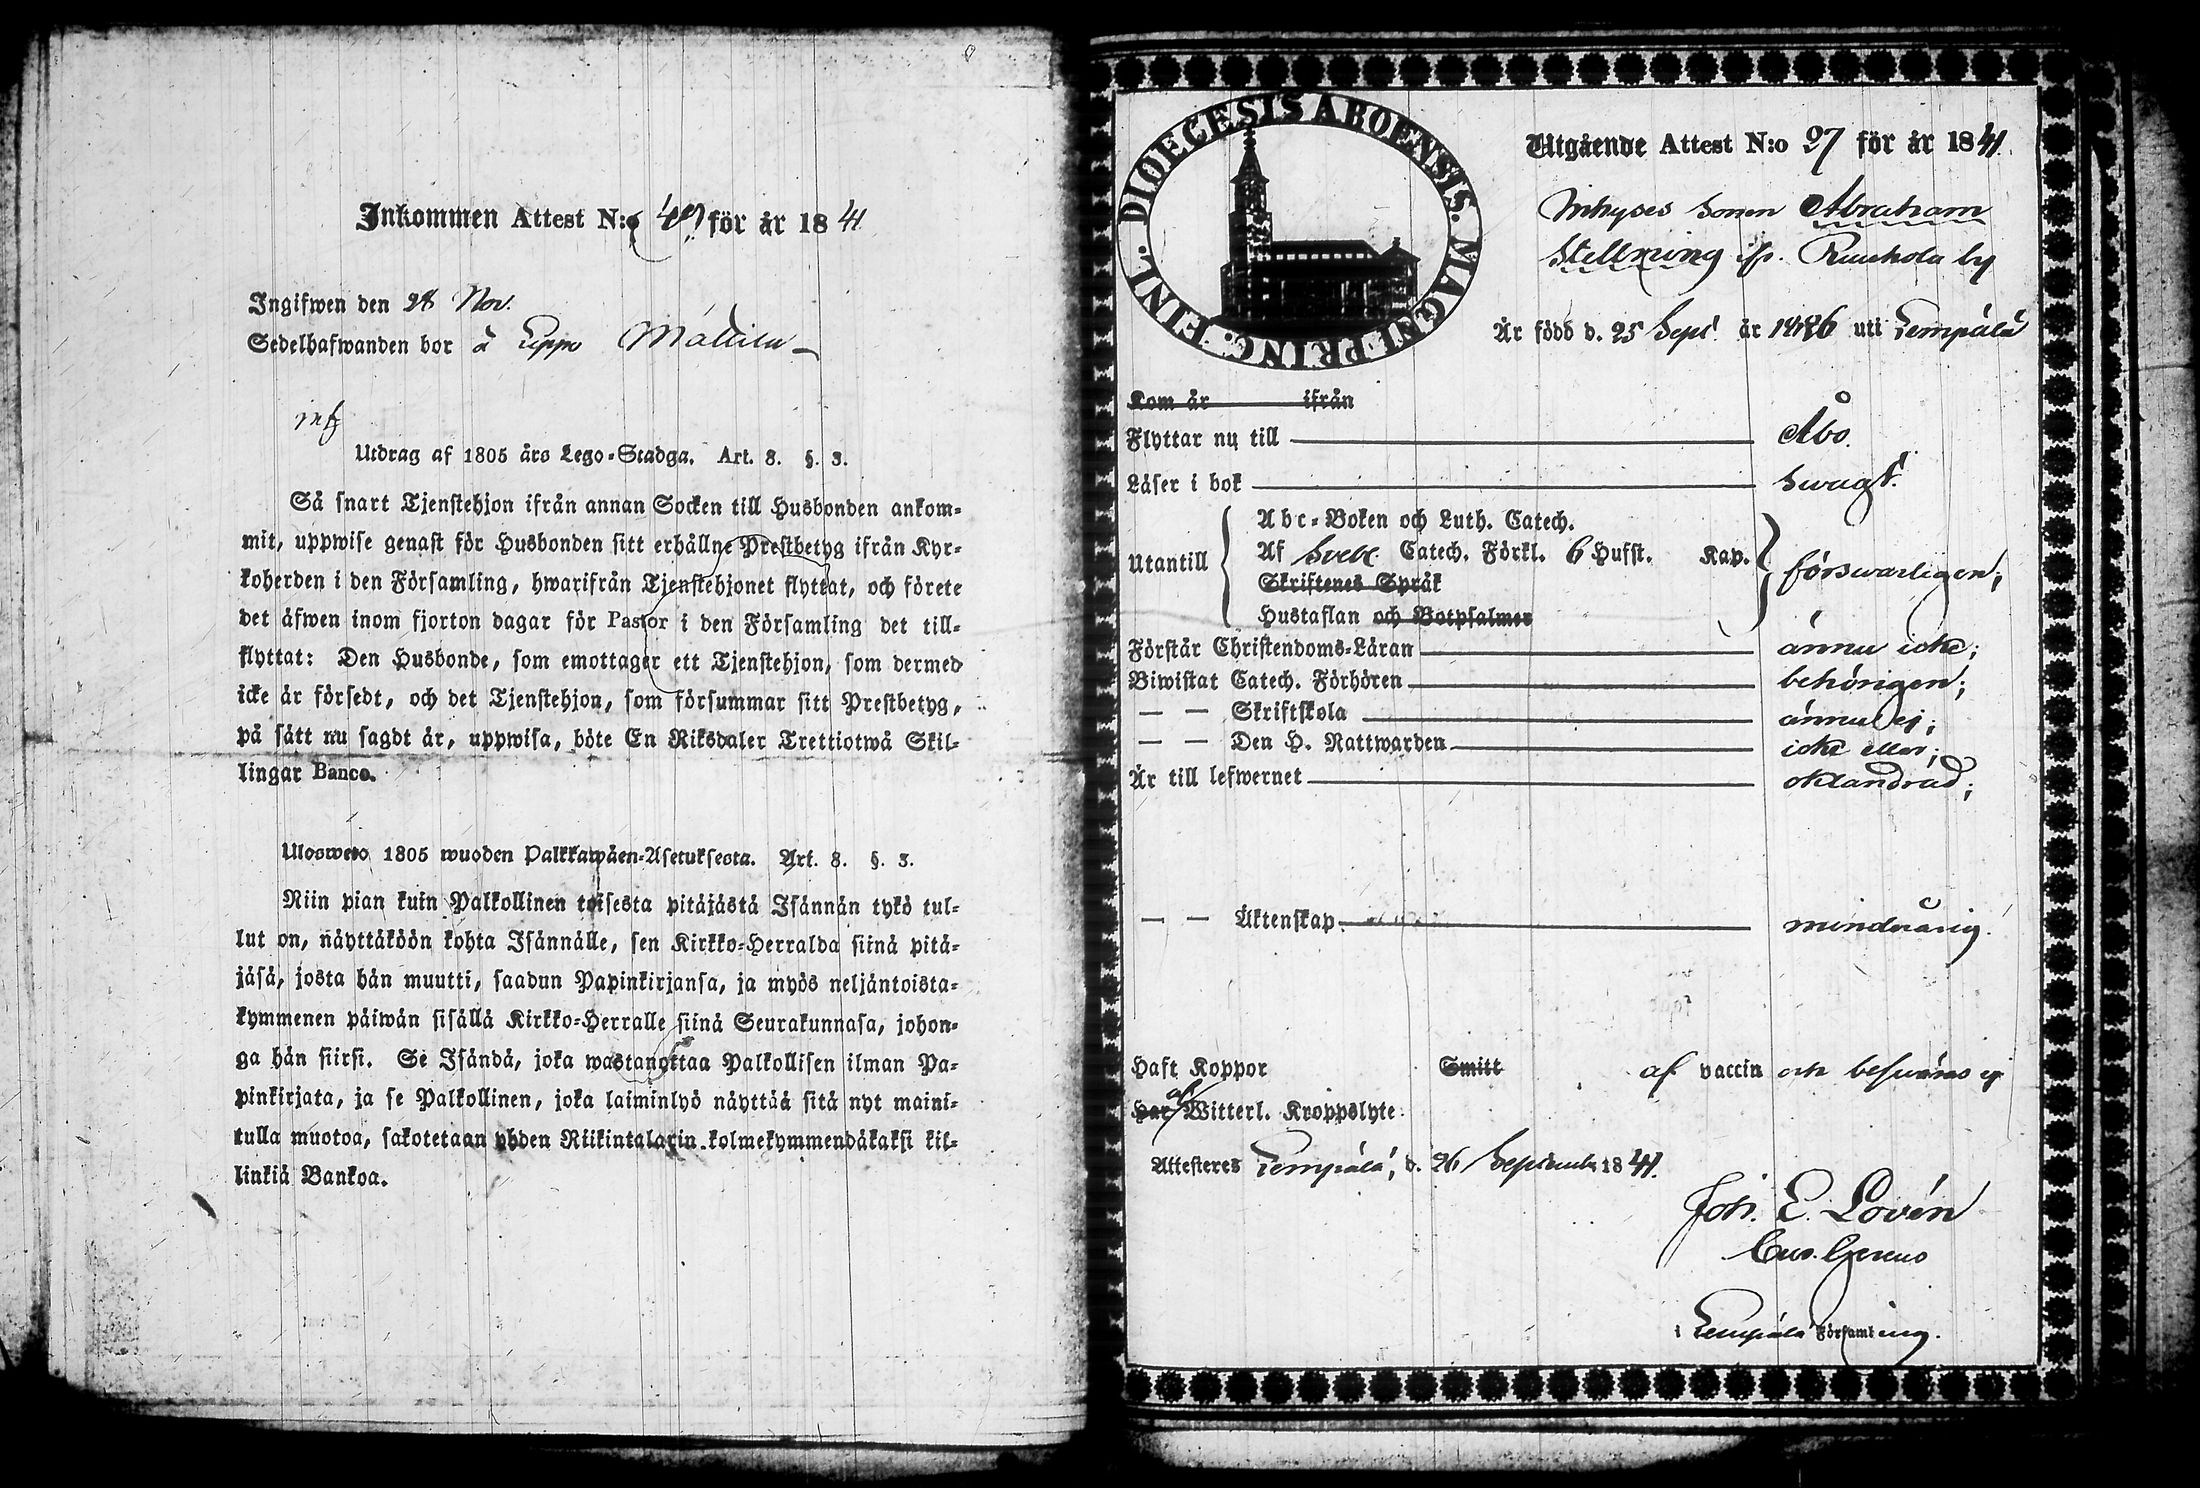 Inkommen Attest N:o 40 för år 1841
Ingifwen den 28 Nov.
Sedelhafwanden bor å Pippo Mattila
Utdrag af 1805 års Lego-Stadga. Art. 8. §. 3.
Så snart Tjenstehjon ifrån annan Socken till Husbonden ankom-
mit, uppwise genast för Husbonden sitt erhållne Prestbetyg ifrån Kyr-
koherden i den Församling, hwarifrån Tjenstehjonet flyttat, och förete
det äfwen inom fjorton dagar för Pastor i den Församling det till-
flyttat: Den Husbonde, som emottager ett Tjenstehjon, som dermed
icke är försedt, och det Tjenstehjon, som försummar sitt Prestbetyg,
på sätt nu sagdt är, uppwisa, böte En Riksdaler Trettiotwå Skil-
lingar Banco.
Ulosweto 1805 wuoden Palkkawäen-Asetuksesta. Art. 8. §. 3.
Niin pian kuin Palkollinen toisesta pitäjästä Isännän tykö tul-
lut on, näyttäköön kohta Isännälle, sen Kirkko-Herralda siinä pitä-
jäsä, josta hän muutti, saadun Papinkirjansa, ja myös neljäntoista-
kymmenen päiwän sisällä Kirkko-Herralle siinä Seurakunnasa, johon-
ga hän siirsi. Se Isändä, joka wastanottaa Palkollisen ilman Pa-
pinkirjata, ja se Palkollinen, joka laiminlyö näyttää sitä nyt maini-
tulla muotoa, sakotetaan yhden Riikintalarin kolmekymmendäkaksi kil-
linkiä Bankoa.
DIOECESIS ABOENSIS. MAGNI PRINC. FINL.
Utgående Attest N:o 97 för år 1841.
Inhyses sonen Abraham
Stellning ifr. Ruuhola by
Är född d. 25 Sept. år 1826 uti Lempälä
Kom år ifrån
Flyttar nu till Åbo.
Läser i bok swagt.
Abc-Boken och Luth. Catech.
Utantill Af Sveb. Catech. Förkl. 6 Hufst. Kap. försvarligen;
Skriftenes Språk
Hustaflan och Botpsalmer
Förstår Christendoms-Läran ännu icke;
Biwistat Catech. Förhören behörigen;
— — Skriftskola ännu ej;
— — Den H. Nattwarden icke eller;
Är till lefwernet oklandrad;
— — Äktenskap. minderårig.
Haft Koppor Smitt af vaccin och besväras ej
Har af Witterl. Kroppslyte
Attesteres Lempälä, d. 26 September 1841.
Joh. E. Lovén
Cur. Gerens
i Lempälä Församling.